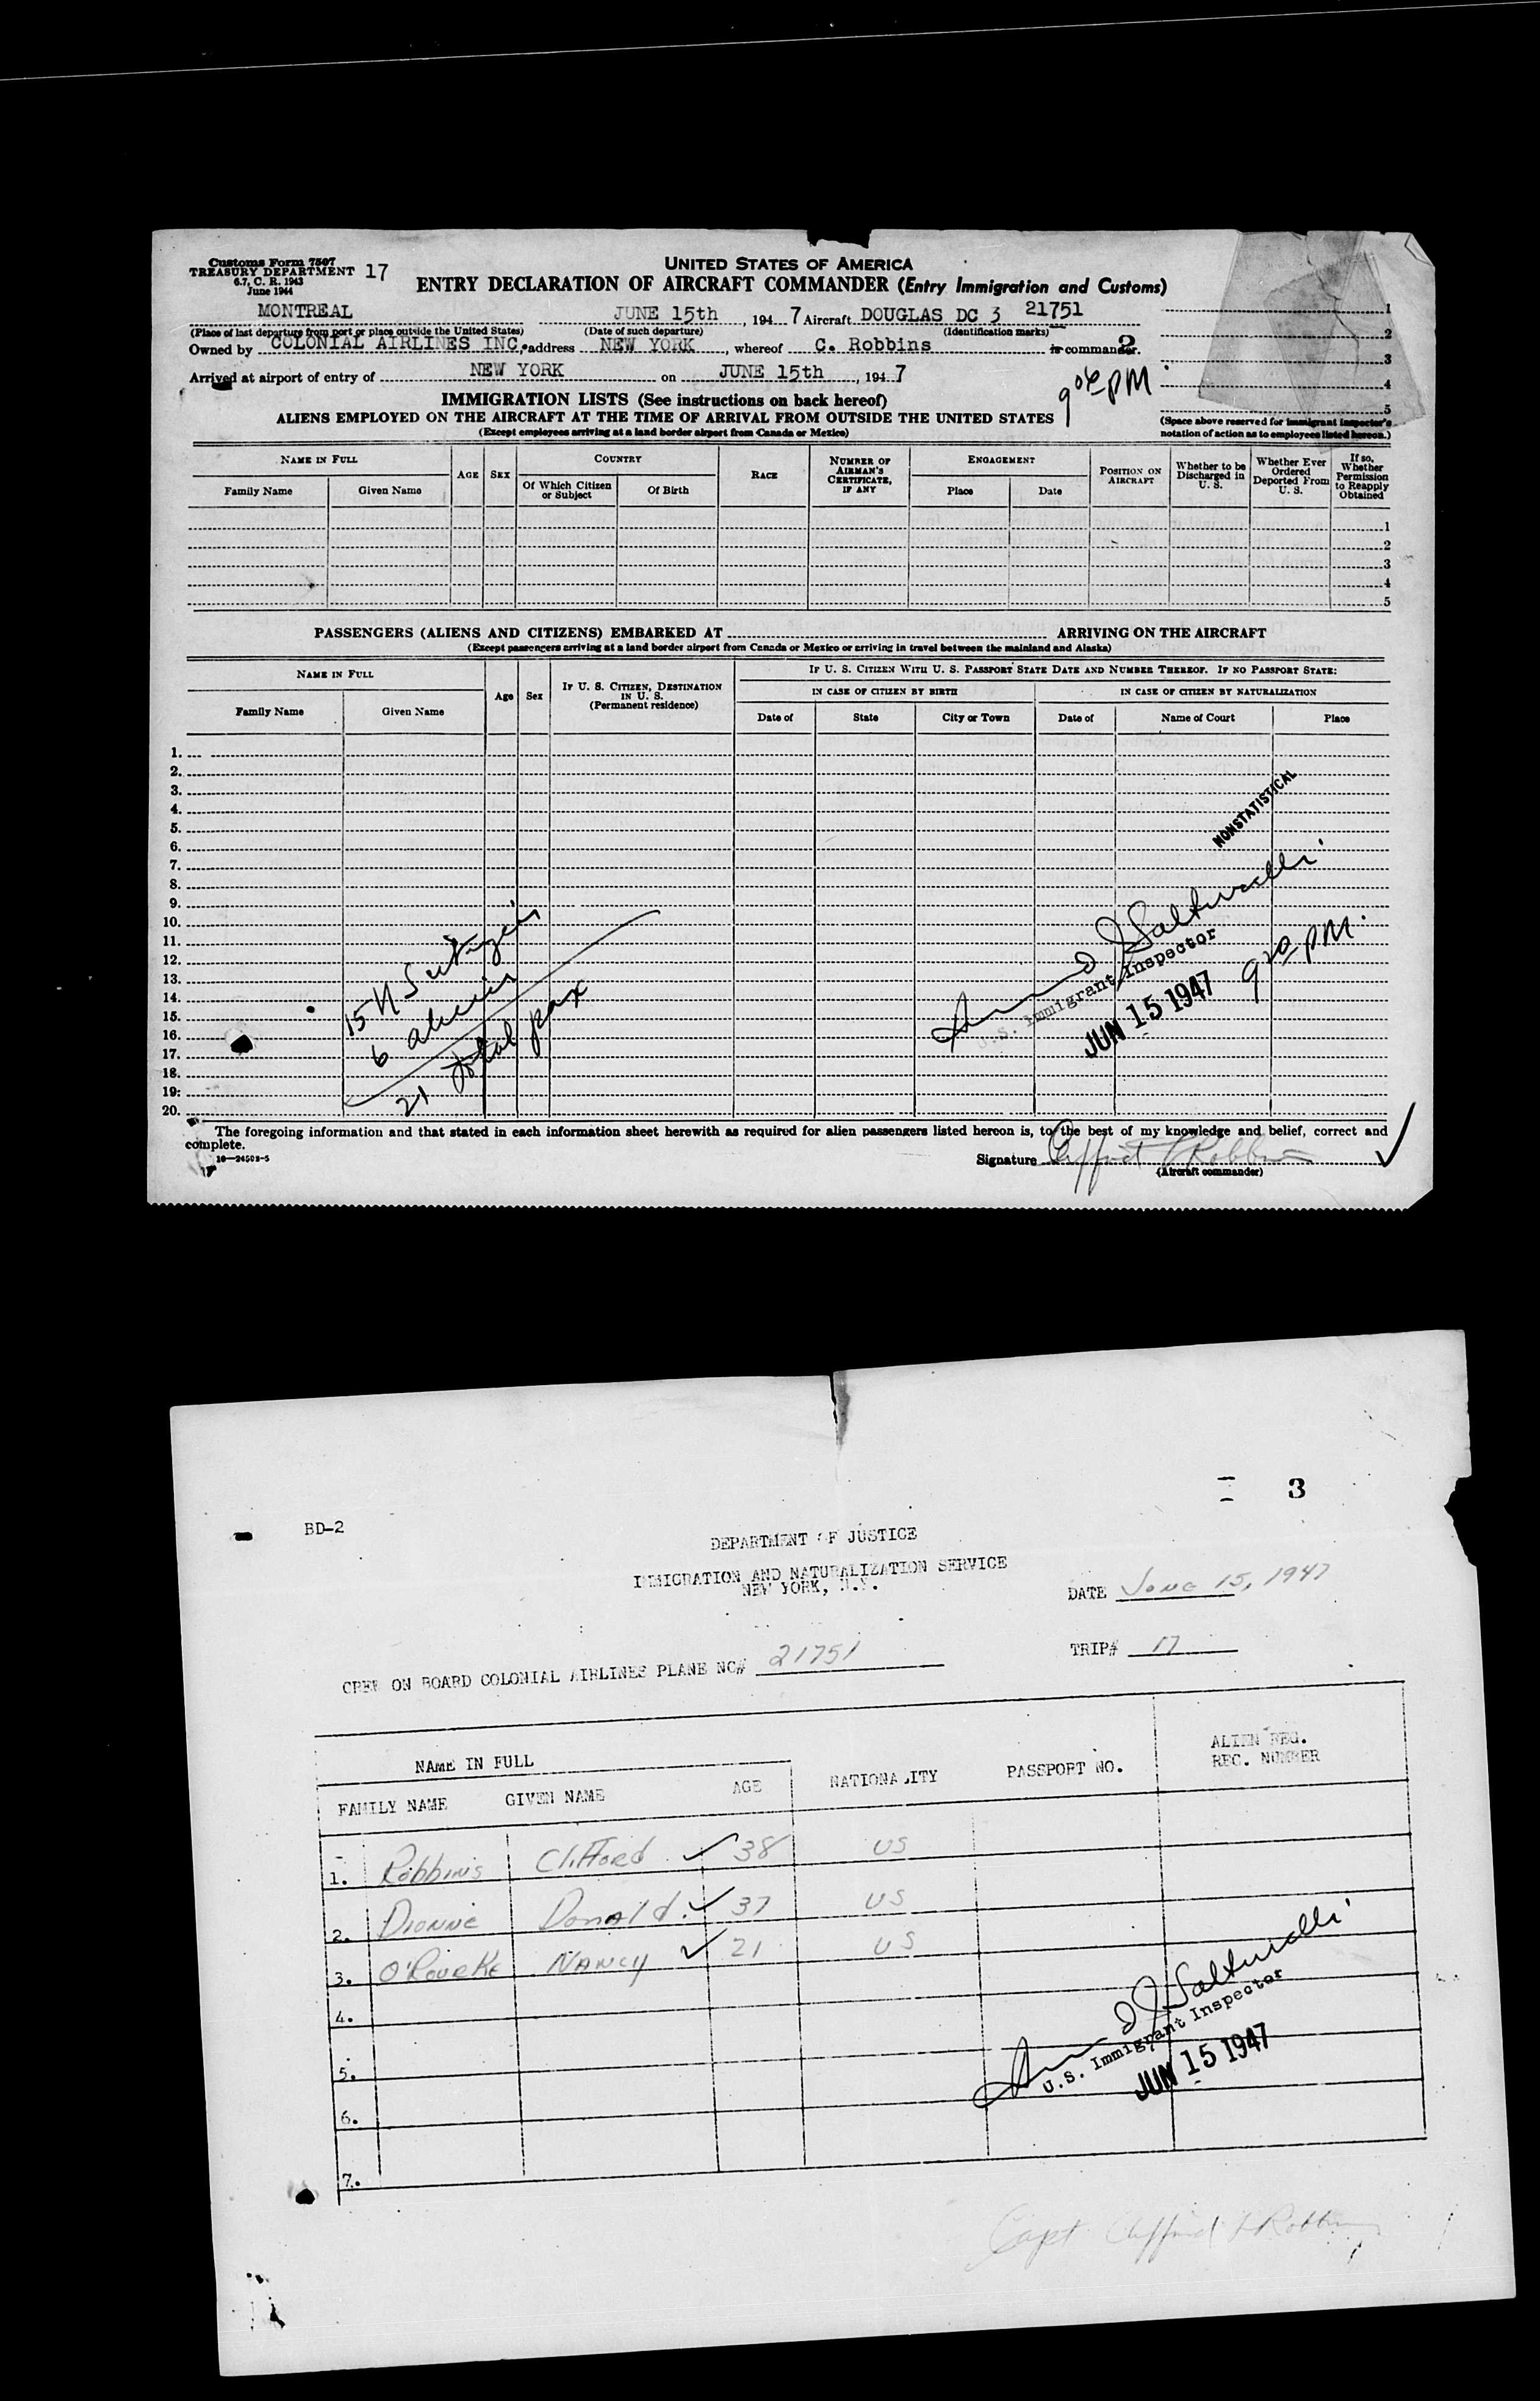 Customs Form 7507
TREASURY DEPARTMENT
6.7, C. R. 1943
June 1944
17
UNITED STATES OF AMERICA
ENTRY DECLARATION OF AIRCRAFT COMMANDER (Entry Immigration and Customs)
MONTREAL JUNE 15th, 1947 Aircraft DOUGLAS DC 3 21751
(Place of last departure from port or place outside the United States) (Date of such departure) (Identification marks)
Owned by COLONIAL AIRLINES INC, address NEW YORK, whereof C. Robbins is commander.
2
Arrived at airport of entry of NEW YORK on JUNE 15th, 1947
1
2
3
4
5
(Space above reserved for immigrant inspector's
notation of action as to employees listed hereon.)
IMMIGRATION LISTS (See instructions on back hereof)
ALIENS EMPLOYED ON THE AIRCRAFT AT THE TIME OF ARRIVAL FROM OUTSIDE THE UNITED STATES
(Except employees arriving at a land border airport from Canada or Mexico)
NAME IN FULL AGE SEX COUNTRY RACE NUMBER OF AIRMAN'S CERTIFICATE, IF ANY ENGAGEMENT POSITION ON AIRCRAFT Whether to be Discharged in U. S. Whether Ever Ordered Deported From U. S. If so, Whether Permission to Reapply Obtained
Family Name Given Name Of Which Citizen or Subject Of Birth Place Date
1
2
3
4
5
PASSENGERS (ALIENS AND CITIZENS) EMBARKED AT ARRIVING ON THE AIRCRAFT
(Except passengers arriving at a land border airport from Canada or Mexico or arriving in travel between the mainland and Alaska)
NAME IN FULL Age Sex IF U. S. CITIZEN, DESTINATION IN U. S. (Permanent residence) IF U. S. CITIZEN WITH U. S. PASSPORT STATE DATE AND NUMBER THEREOF. IF NO PASSPORT STATE:
IN CASE OF CITIZEN BY BIRTH IN CASE OF CITIZEN BY NATURALIZATION
Family Name Given Name Date of State City or Town Date of Name of Court Place
1.
2.
3.
4.
5.
6.
7.
8.
9.
10.
11.
12.
13.
14.
15.
16.
17.
18.
19.
20.
NONSTATISTICAL
15
6 aliens
21 total pax
U.S. Immigrant Inspector
JUN 15 1947
PM
The foregoing information and that stated in each information sheet herewith as required for alien passengers listed hereon is, to the best of my knowledge and belief, correct and
complete.
16—24502-5
Signature Clifford F Robbins
(Aircraft commander)
3
BD-2
DEPARTMENT OF JUSTICE
IMMIGRATION AND NATURALIZATION SERVICE
NEW YORK, N.Y.
DATE June 15, 1947
CREW ON BOARD COLONIAL AIRLINES PLANE NO# 21751
TRIP# 17
NAME IN FULL
FAMILY NAME GIVEN NAME AGE NATIONALITY PASSPORT NO. ALIEN REG. REG. NUMBER
1. Robbins Clifford 38 US
2. Dionne Donald 37 US
3. O'Rourke Nancy 21 US
4.
5.
6.
7.
U.S. Immigrant Inspector
JUN 15 1947
Capt Clifford F Robbins